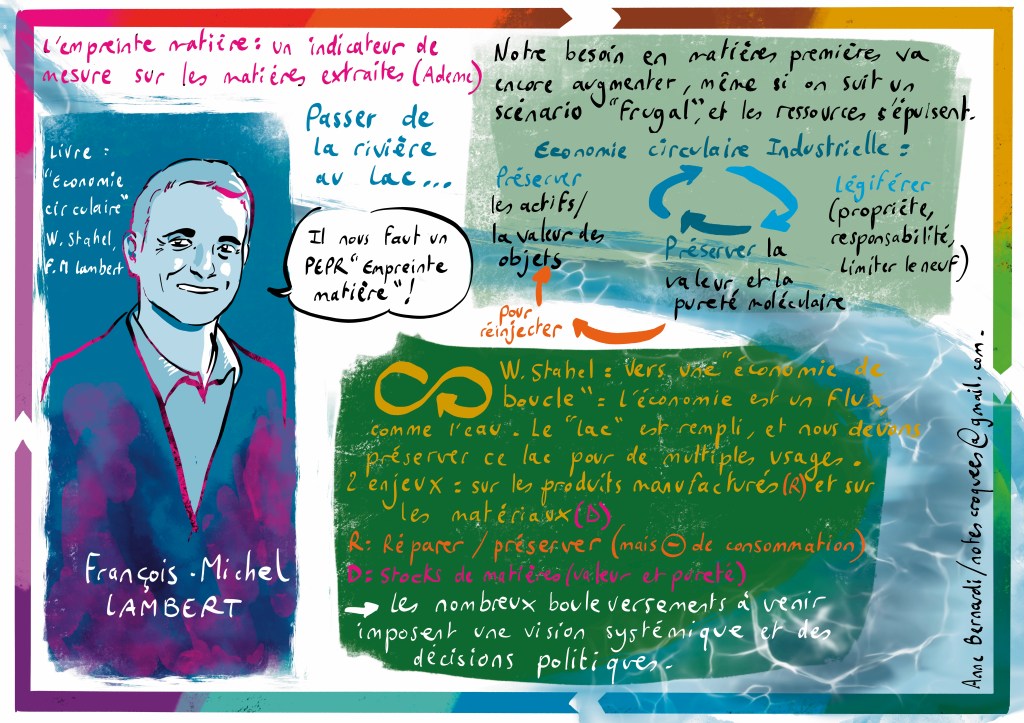 L'empreinte matière : un indicateur de
mesure sur les matières extraites (Ademe)
Livre :
"Economie
circulaire"
W. Stahel,
F.M Lambert
Passer de
la rivière
au lac...
Il nous faut un
PEPR "Empreinte
matière" !
François-Michel
LAMBERT
Notre besoin en matières premières va
encore augmenter, même si on suit un
scénario "frugal", et les ressources s'épuisent.
Economie circulaire Industrielle :
Préserver
les actifs/
la valeur des
objets
Légiférer
(propriété,
responsabilité,
limiter le neuf)
Préserver la
valeur et la
pureté moléculaire
Pour
réinjecter
W. Stahel : Vers une "économie de
boucle" : L'économie est un flux,
comme l'eau. Le "lac" est rempli, et nous devons
préserver ce lac pour de multiples usages.
2 enjeux : sur les produits manufacturés (R) et sur
les matériaux (D)
R : Réparer / préserver (mais - de consommation)
D : Stocks de matières (valeur et pureté)
→ Les nombreux bouleversements à venir
imposent une vision systémique et des
décisions politiques.
Anne Bernardi/notescroquees@gmail.com.